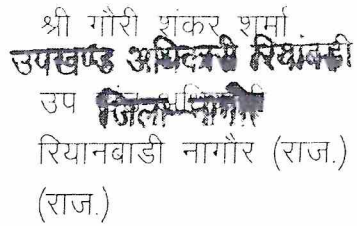 श्री गौरी शंकर शर्मा
उपखण्ड अधिकारी रियांबडी
उप
जिला नागौर
रियानबाडी नागौर (राज.)
(राज.)